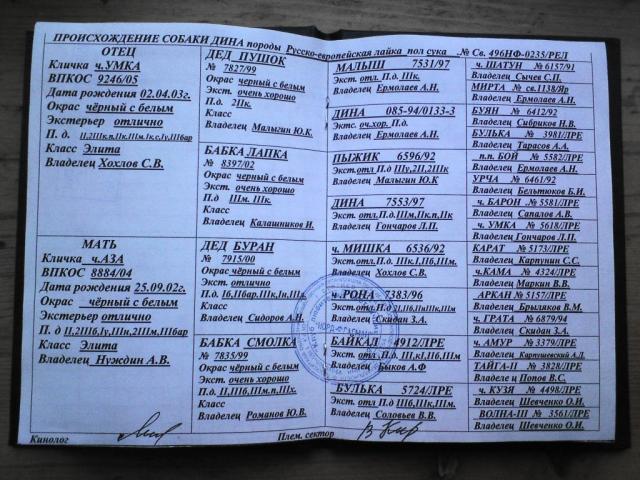 ПРОИСХОЖДЕНИЕ СОБАКИ ДИНА породы Русско-европейская лайка пол сука .№ Св. 496НФ-0235/РЕЛ
ОТЕЦ
Кличка ч.УМКА
ВПКОС 9246/05
Дата рождения 02.04.03г.
Окрас чёрный с белым
Экстерьер отлично
П. д.
Класс Элита
Владелец Хохлов С.В.
МАТЬ
Кличка ч.АЗА
ВПКОС 8884/04
Дата рождения 25.09.02г.
Окрас чёрный с белым
Экстерьер отлично
П. д
Класс Элита
Владелец Нуждин А.В.
ДЕД ПУШОК
№ 7827/99
Окрас чёрный с белым
Экст. очень хорошо
П.д. 2IIк.
Класс
Владелец Малыгин Ю.К.
БАБКА ЛАПКА
№ 8397/02
Окрас чёрный с белым
Экст. очень хорошо
П.д IIIм. IIIк.
Класс
Владелец Калашников И.
ДЕД БУРАН
№ 7915/00
Окрас чёрный с белым
Экст. отлично
П.д.
Класс
Владелец Сидоров А.Н.
БАБКА СМОЛКА
№ 7835/99
Окрас чёрный с белым
Экст. очень хорошо
П.д.
Класс
Владелец Романов Ю.В.
МАЛЫШ 7531/97
Экст. отл. П.д. IIIк.
Владелец Ермолаев А.Н.
ДИНА 085-94/0133-3
Экст. оч.хор. П.д.
Владелец Ермолаев А.Н.
ПЫЖИК 6596/92
Экст. отл П.д
Владелец Малыгин Ю.К
ДИНА 7553/97
Экст. отл.П.д.
Владелец Гончаров Л.П.
ч. МИШКА 6536/92
Экст. отл.П.д.
Владелец Хохлов С.В.
ч. РОНА 7383/96
Экст. отл.П.д
Владелец Скидан З.А.
БАЙКАЛ 4912/ЛРЕ
Экст. отл.П.д.
Владелец Быков А.Ф
БУЛЬКА 5724/ЛРЕ
Экст. отл П.д
Владелец Соловьев В.В.
ч. ШАТУН № 6157/91
Владелец Сычев С.П.
МИРТА № св.1138/Яр
Владелец Ермолаев А.Н.
БУЯН № 6412/92
Владелец Сибриков Н.В.
БУЛЬКА № 3981/ЛРЕ
Владелец Тарасов А.А.
п.п. БОЙ № 5582/ЛРЕ
Владелец Ермолаев А.Н.
УРЧА № 6461/92
Владелец Бельтюков Б.И.
ч. БАРОН № 5581/ЛРЕ
Владелец Сапалов А.В.
ч. УМКА № 5618/ЛРЕ
Владелец Гончаров Л.П.
КАРАТ № 5173/ЛРЕ
Владелец Карпунин С.С.
ч.КАМА № 4324/ЛРЕ
Владелец Маркин В.В.
АРКАН № 5157/ЛРЕ
Владелец Брыляков В.М.
ч. ГРАТА № 6879/94
Владелец Скидан З.А.
ч. АМУР № 3379/ЛРЕ
Владелец Карпушевский А.Д.
ТАЙГА-II № 3828/ЛРЕ
Владелец Попов В.С.
ч. КУЗЯ № 4498/ЛРЕ
Владелец Шевченко О.И.
ВОЛНА-III № 3561/ЛРЕ
Владелец Шевченко О.И.
Кинолог
Плем. сектор